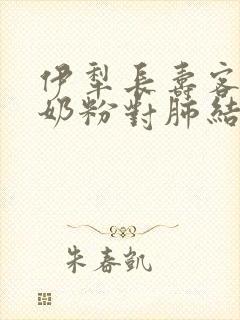 伊犁長壽客
奶粉對肺結
朱春凱